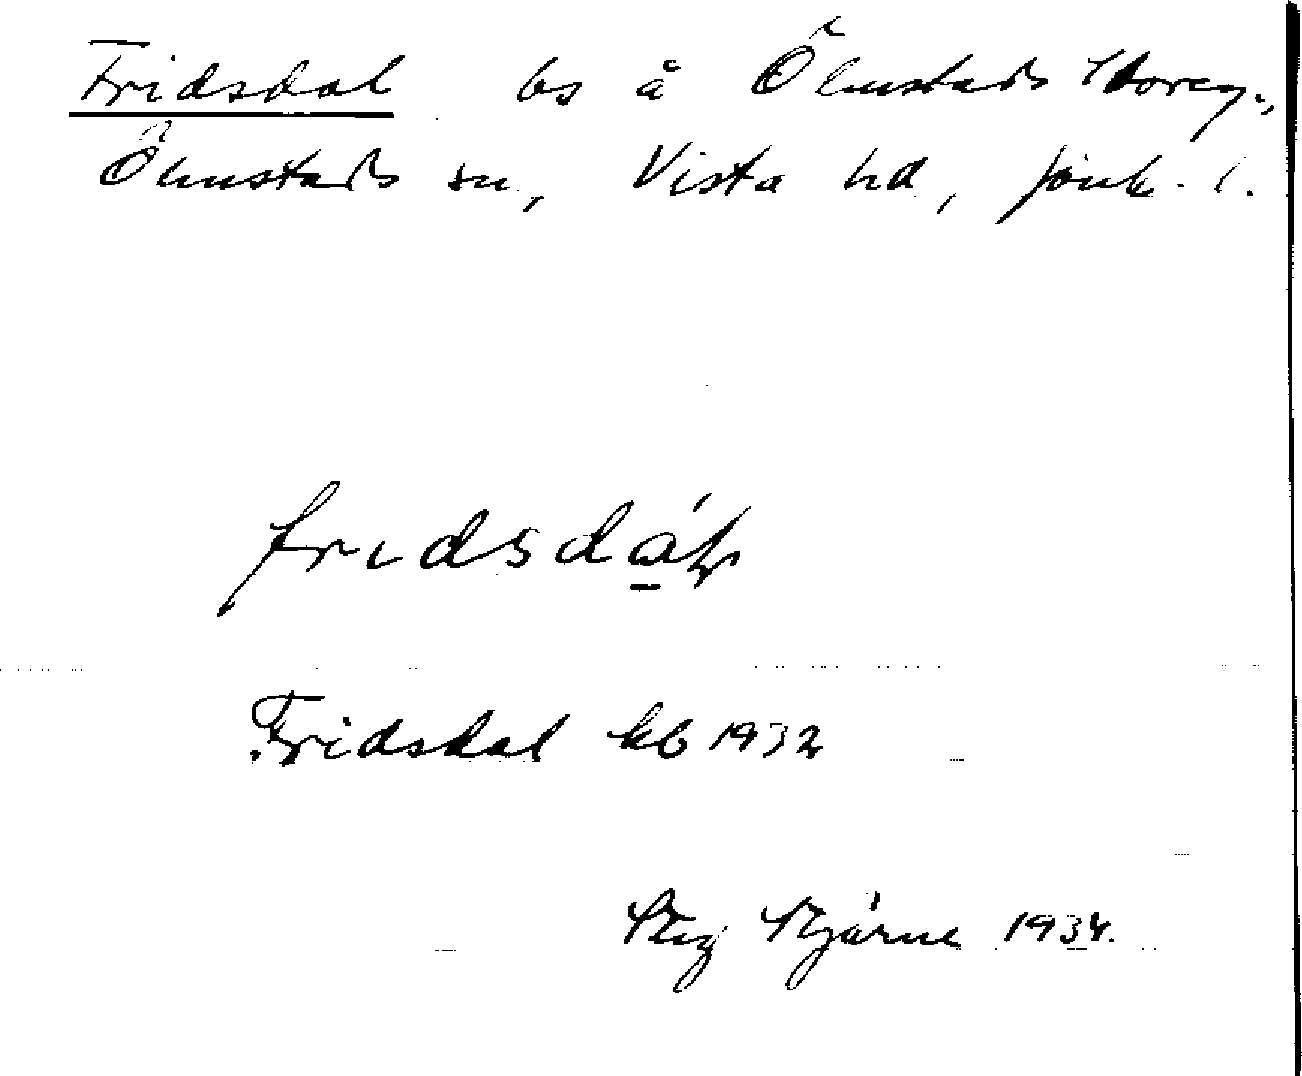 Fridsdal bs å Ölmstads Storeg.,
Ölmstads sn, Vista hd, Jönk. l.
fridsdál
Fridsdal kb 1932
Stig Stjärne 1934.